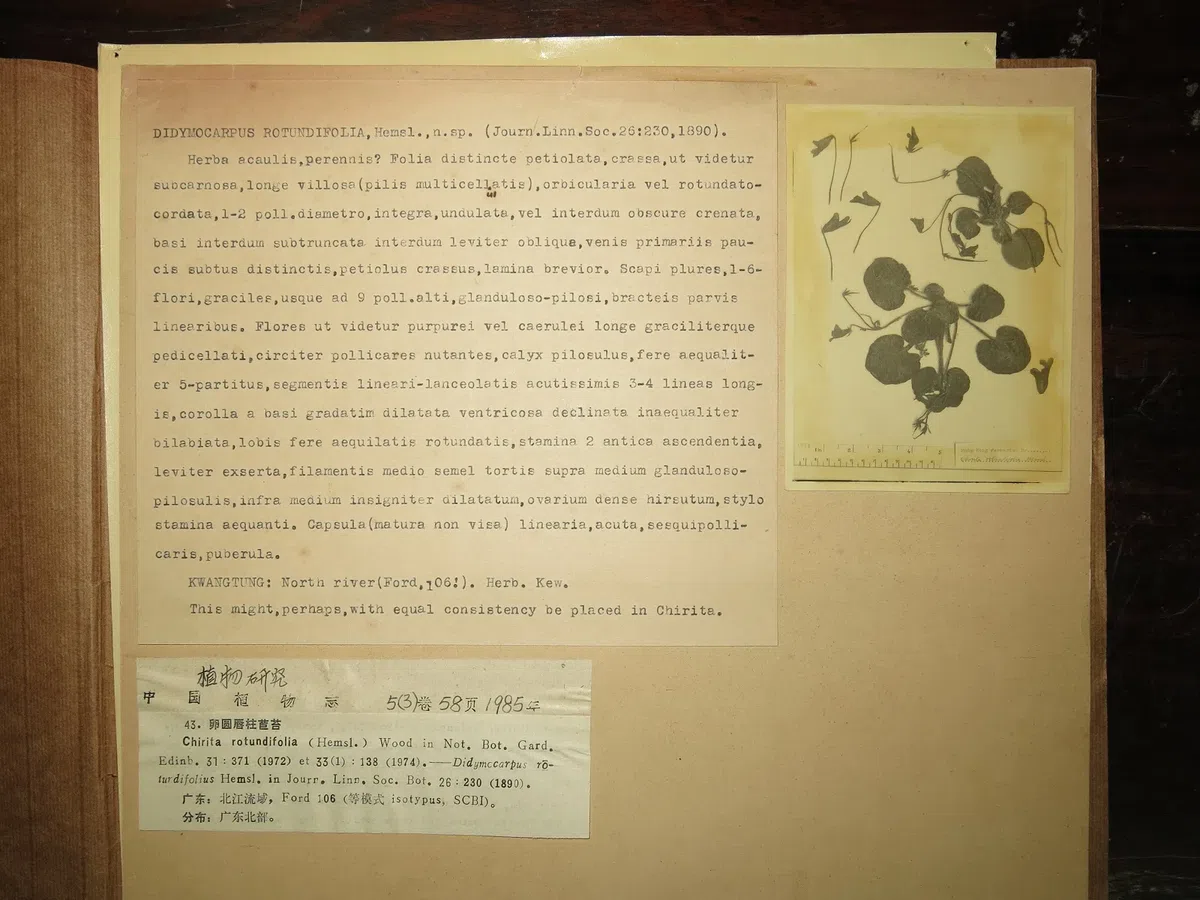 DIDYMOCARPUS ROTUNDIFOLIA,Hemsl.,n.sp. (Journ.Linn.Soc.26:230,1890).
Herba acaulis,perennis? Folia distincte petiolata,crassa,ut videtur
subcarnosa,longe villosa(pilis multicellatis),orbicularia vel rotundato-
ul
cordata,1-2 poll.diametro,integra,undulata,vel interdum obscure crenata,
basi interdum subtruncata interdum leviter obliqua,venis primariis pau-
cis subtus distinctis,petiolus crassus,lamina brevior. Scapi plures,1-6-
flori,graciles,usque ad 9 poll.alti,glanduloso-pilosi,bracteis parvis
linearibus. Flores ut videtur purpurei vel caerulei longe graciliterque
pedicellati,circiter pollicares nutantes,calyx pilosulus,fere aequalit-
er 5-partitus,segmentis lineari-lanceolatis acutissimis 3-4 lineas long-
is,corolla a basi gradatim dilatata ventricosa declinata inaequaliter
bilabiata,lobis fere aequilatis rotundatis,stamina 2 antica ascendentia,
leviter exserta,filamentis medio semel tortis supra medium glanduloso-
pilosulis,infra medium insigniter dilatatum,ovarium dense hirsutum,stylo
stamina aequanti. Capsula(matura non visa) linearia,acuta,sesquipolli-
caris,puberula.
KWANGTUNG: North river(Ford,106!). Herb. Kew.
This might,perhaps,with equal consistency be placed in Chirita.
植物研究
中 国 植 物 志 5(3)卷 58页 1985年
43. 卵圆唇柱苣苔
Chirita rotundifolia (Hemsl.) Wood in Not. Bot. Gard.
Edinb. 31 : 371 (1972) et 33(1) : 138 (1974).——Didymocarpus ro-
tundifolius Hemsl. in Journ. Linn. Soc. Bot. 26 : 230 (1890).
广东: 北江流域, Ford 106 (等模式 isotypus, SCBI)。
分布: 广东北部。